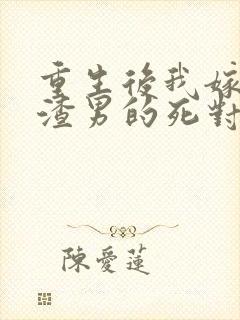 重生後我嫁
渣男的死對
陳愛蓮